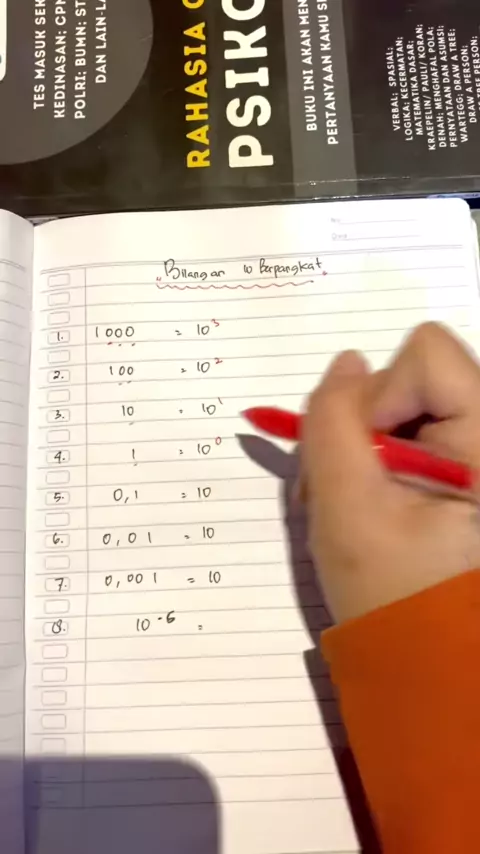 TES MASUK SEK
KEDINASAN; CPN
POLRI; BUMN; ST
DAN LAIN-LA
RAHASIA
PSIKO
BUKU INI AKAN MEN
PERTANYAAN KAMU S
VERBAL; SPASIAL;
LOGIKA; KECERMATAN;
MATEMATIKA DASAR;
KRAEPELIN/ PAULI/ KORAN;
DENAH; MENGHAFAL POLA;
PERNYATAAN DAN ASUMSI;
WARTEGG; DRAW A TREE;
DRAW A PERSON;
"Bilangan 10 Berpangkat"
1. 1000 = 10³
2. 100 = 10²
3. 10 = 10¹
4. 1 = 10⁰
5. 0,1 = 10
6. 0,01 = 10
7. 0,001 = 10
8. 10⁻⁶ =